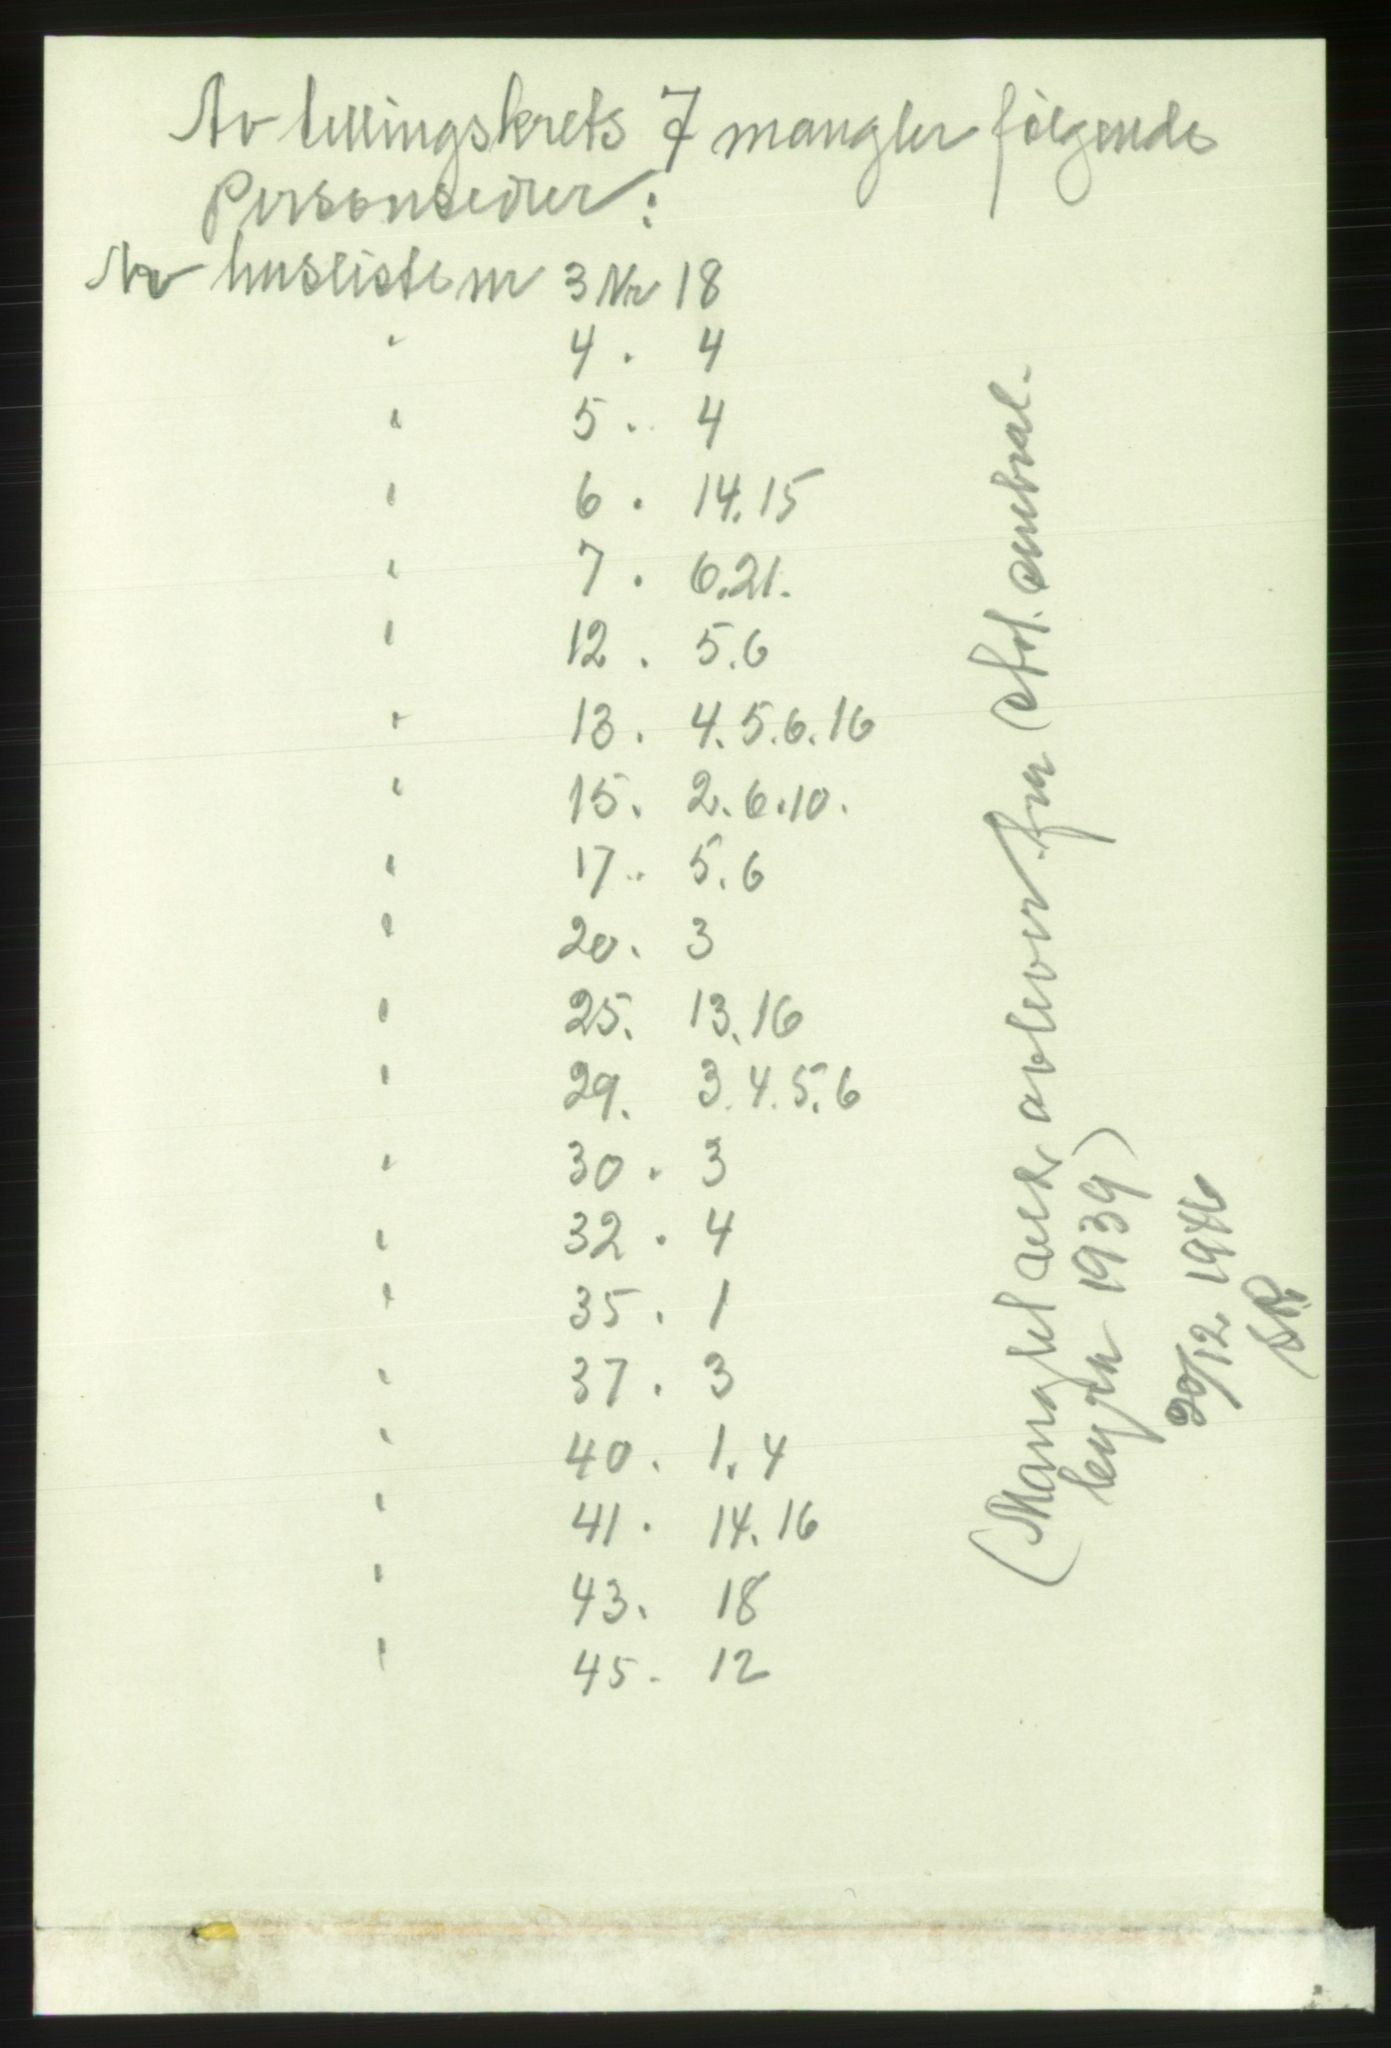 Av tellingskrets 7 mangler følgende
Personsedler:
Av husliste nr 3 Nr 18
" 4 . 4
" 5 . 4
" 6 . 14.15
" 7 . 6.21.
" 12 . 5.6
" 13 . 4.5.6.16
" 15 . 2.6.10.
" 17 . 5.6
" 20 . 3
" 25 . 13.16
" 29 . 3.4.5.6
" 30 . 3
" 32 . 4
" 35 . 1
" 37 . 3
" 40 . 1.4
" 41 . 14.16
" 43 . 18
" 45 . 12
(Manglet avlever. fra Stat. sentral-
1939)
20/12 1946